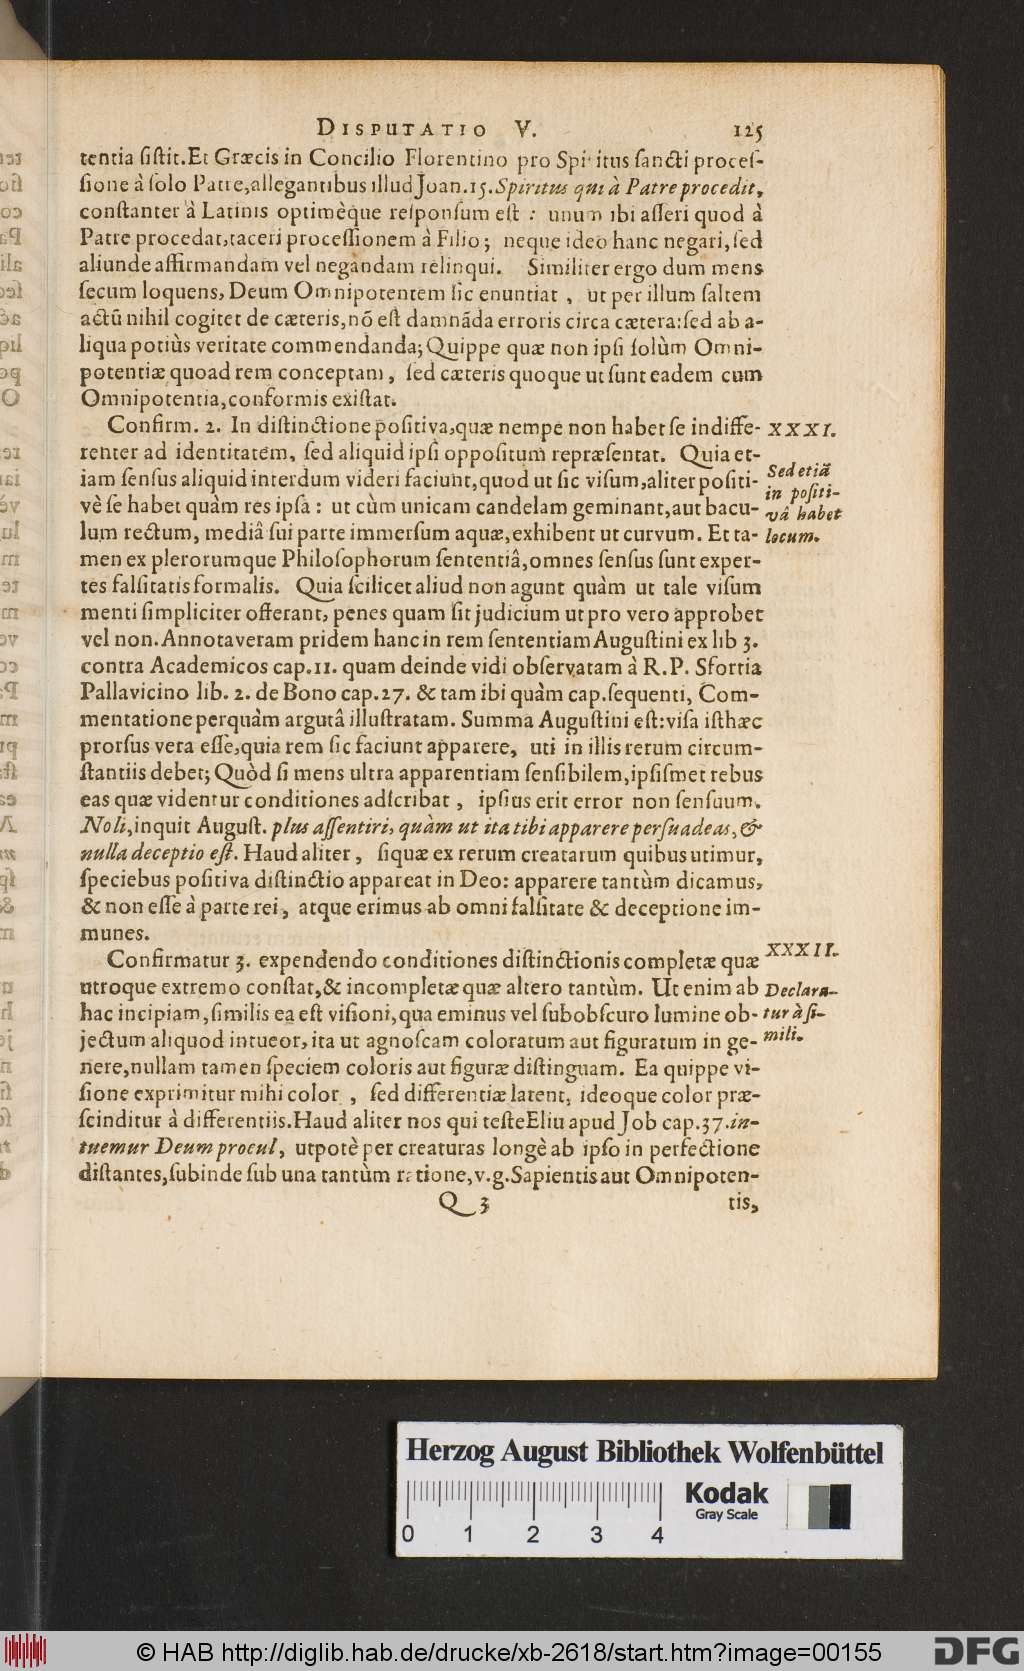 DISPUTATIO V. 125
tentia ſiſtit. Et Græcis in Concilio Florentino pro Spiritus ſancti proceſ-
ſione à ſolo Patre, allegantibus illud Joan. 15. Spiritus qui à Patre procedit,
conſtanter à Latinis optimèque reſponſum eſt : unum ibi aſſeri quod à
Patre procedat, taceri proceſſionem à Filio; neque ideo hanc negari, ſed
aliunde affirmandam vel negandam relinqui. Similiter ergo dum mens
ſecum loquens, Deum Omnipotentem ſic enuntiat , ut per illum ſaltem
actũ nihil cogitet de cæteris, nõ eſt damnãda erroris circa cætera: ſed ab a-
liqua potiùs veritate commendanda; Quippe quæ non ipſi ſolùm Omni-
potentiæ quoad rem conceptam , ſed cæteris quoque ut ſunt eadem cum
Omnipotentia, conformis exiſtat.
Confirm. 2. In diſtinctione poſitiva, quæ nempe non habet ſe indiffe- XXXI.
renter ad identitatem, ſed aliquid ipſi oppoſitum repræſentat. Quia et-
iam ſenſus aliquid interdum videri faciunt, quod ut ſic viſum, aliter poſiti- Sed etiã
vè ſe habet quàm res ipſa : ut cùm unicam candelam geminant, aut bacu- in poſiti-
vâ habet
lum rectum, mediâ ſui parte immerſum aquæ, exhibent ut curvum. Et ta- locum.
men ex plerorumque Philoſophorum ſententiâ, omnes ſenſus ſunt exper-
tes falſitatis formalis. Quia ſcilicet aliud non agunt quàm ut tale viſum
menti ſimpliciter offerant, penes quam ſit judicium ut pro vero approbet
vel non. Annotaveram pridem hanc in rem ſententiam Auguſtini ex lib 3.
contra Academicos cap. 11. quam deinde vidi obſervatam à R. P. Sfortia
Pallavicino lib. 2. de Bono cap. 27. & tam ibi quàm cap. ſequenti, Com-
mentatione perquàm argutâ illuſtratam. Summa Auguſtini eſt: viſa iſthæc
prorſus vera eſſe, quia rem ſic faciunt apparere, uti in illis rerum circum-
ſtantiis debet; Quòd ſi mens ultra apparentiam ſenſibilem, ipſiſmet rebus
eas quæ videntur conditiones adſcribat , ipſius erit error non ſenſuum.
Noli, inquit Auguſt. plus aſſentiri, quàm ut ita tibi apparere perſuadeas, &
nulla deceptio eſt. Haud aliter , ſiquæ ex rerum creatarum quibus utimur,
ſpeciebus poſitiva diſtinctio appareat in Deo: apparere tantùm dicamus,
& non eſſe à parte rei, atque erimus ab omni falſitate & deceptione im-
munes.
Confirmatur 3. expendendo conditiones diſtinctionis completæ quæ XXXII.
utroque extremo conſtat, & incompletæ quæ altero tantùm. Ut enim ab Declara-
hac incipiam, ſimilis ea eſt viſioni, qua eminus vel ſubobſcuro lumine ob- tur à ſi-
jectum aliquod intueor, ita ut agnoſcam coloratum aut figuratum in ge- mili.
nere, nullam tamen ſpeciem coloris aut figuræ diſtinguam. Ea quippe vi-
ſione exprimitur mihi color , ſed differentiæ latent, ideoque color præ-
ſcinditur à differentiis. Haud aliter nos qui teſte Eliu apud Job cap. 37. in-
tuemur Deum procul, utpotè per creaturas longè ab ipſo in perfectione
diſtantes, ſubinde ſub una tantùm ratione, v. g. Sapientis aut Omnipoten-
Q 3 tis,
Herzog August Bibliothek Wolfenbüttel
Kodak
Gray Scale
0 1 2 3 4
© HAB http://diglib.hab.de/drucke/xb-2618/start.htm?image=00155
DFG